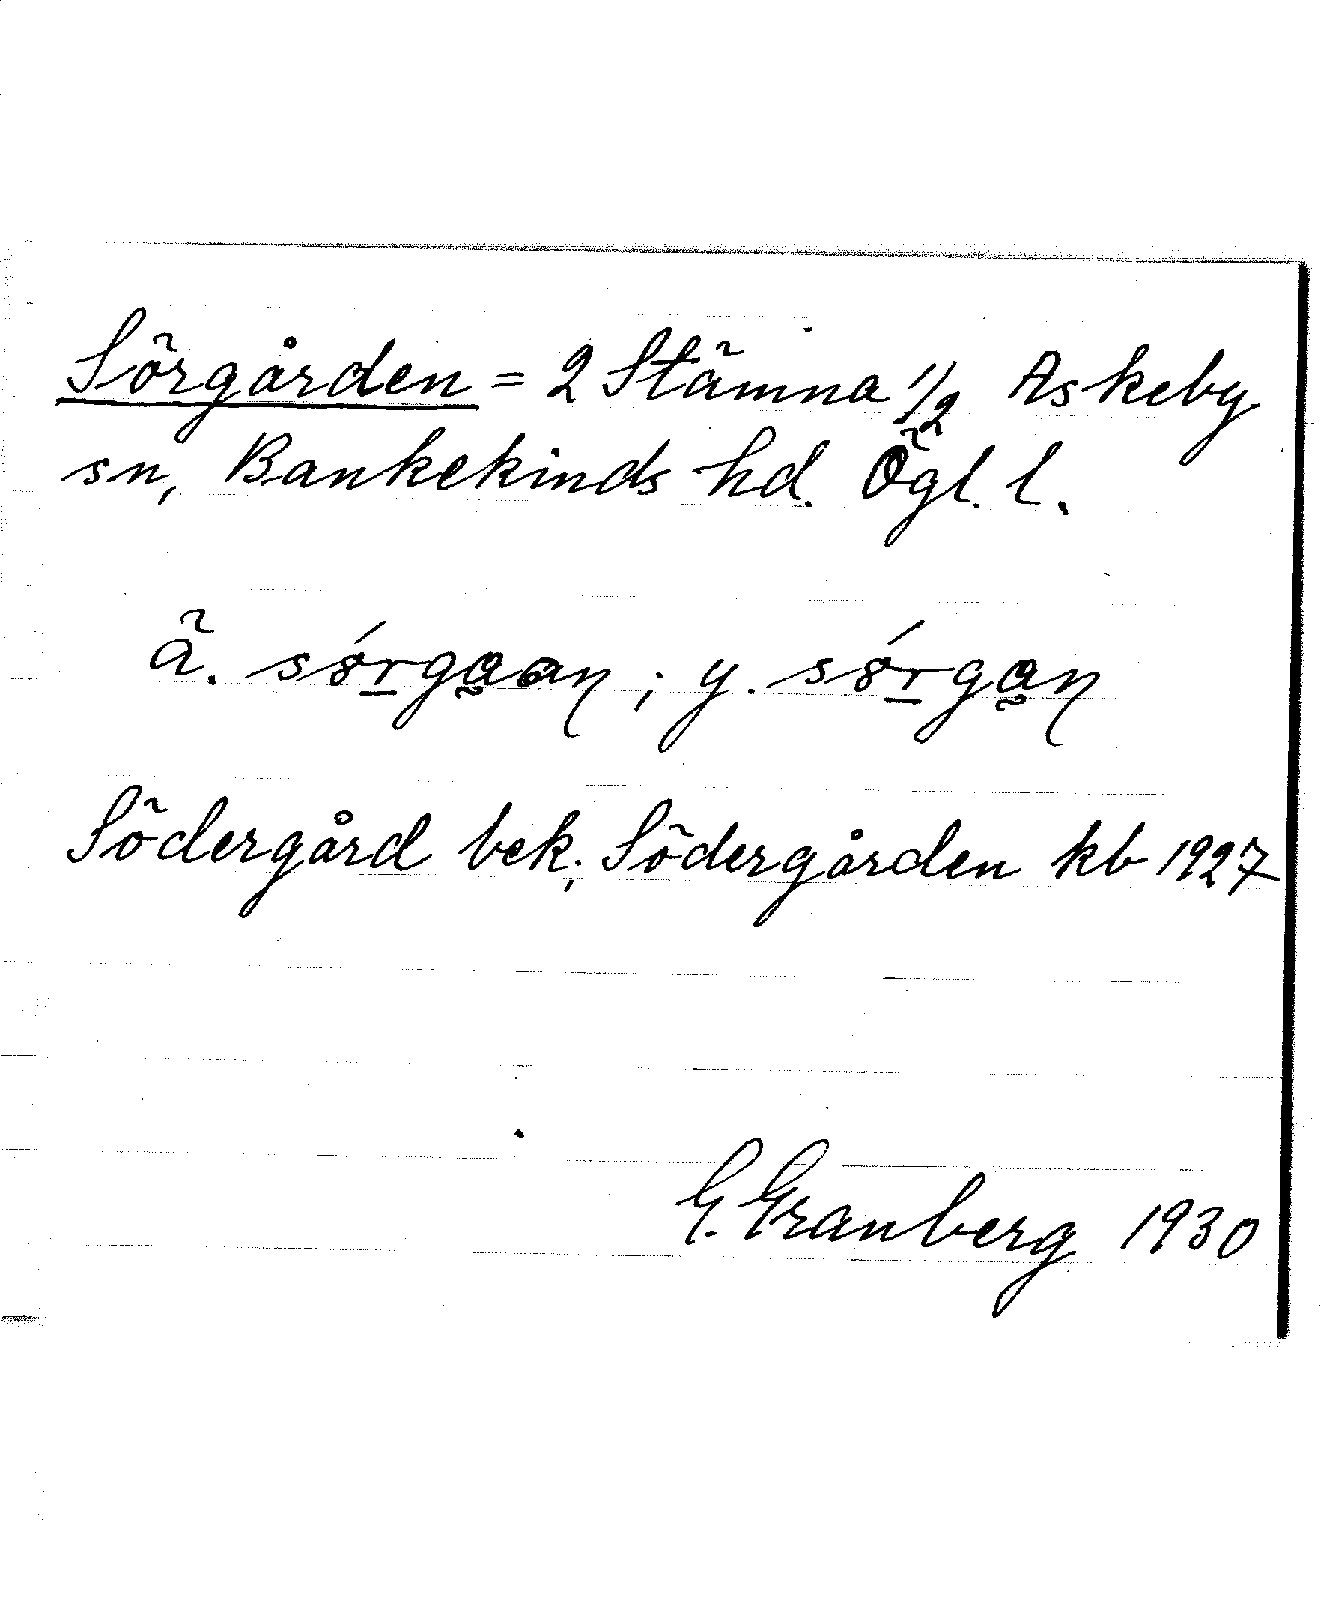 Sörgården = 2 Stämna 1/2 Askeby
sn, Bankekinds hd. Ögl. l.
ä. sǿrgaan; y. sǿrgan
Södergård bek; Södergården kb 1927
G. Granberg 1930